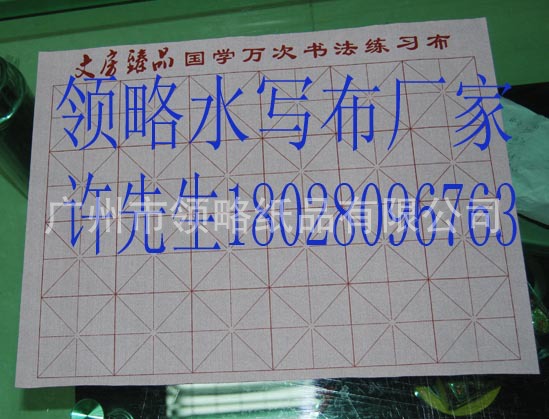 文房臻品 国学万次书法练习布
领略水写布厂家
许先生18028096763
广州市领略纸品有限公司